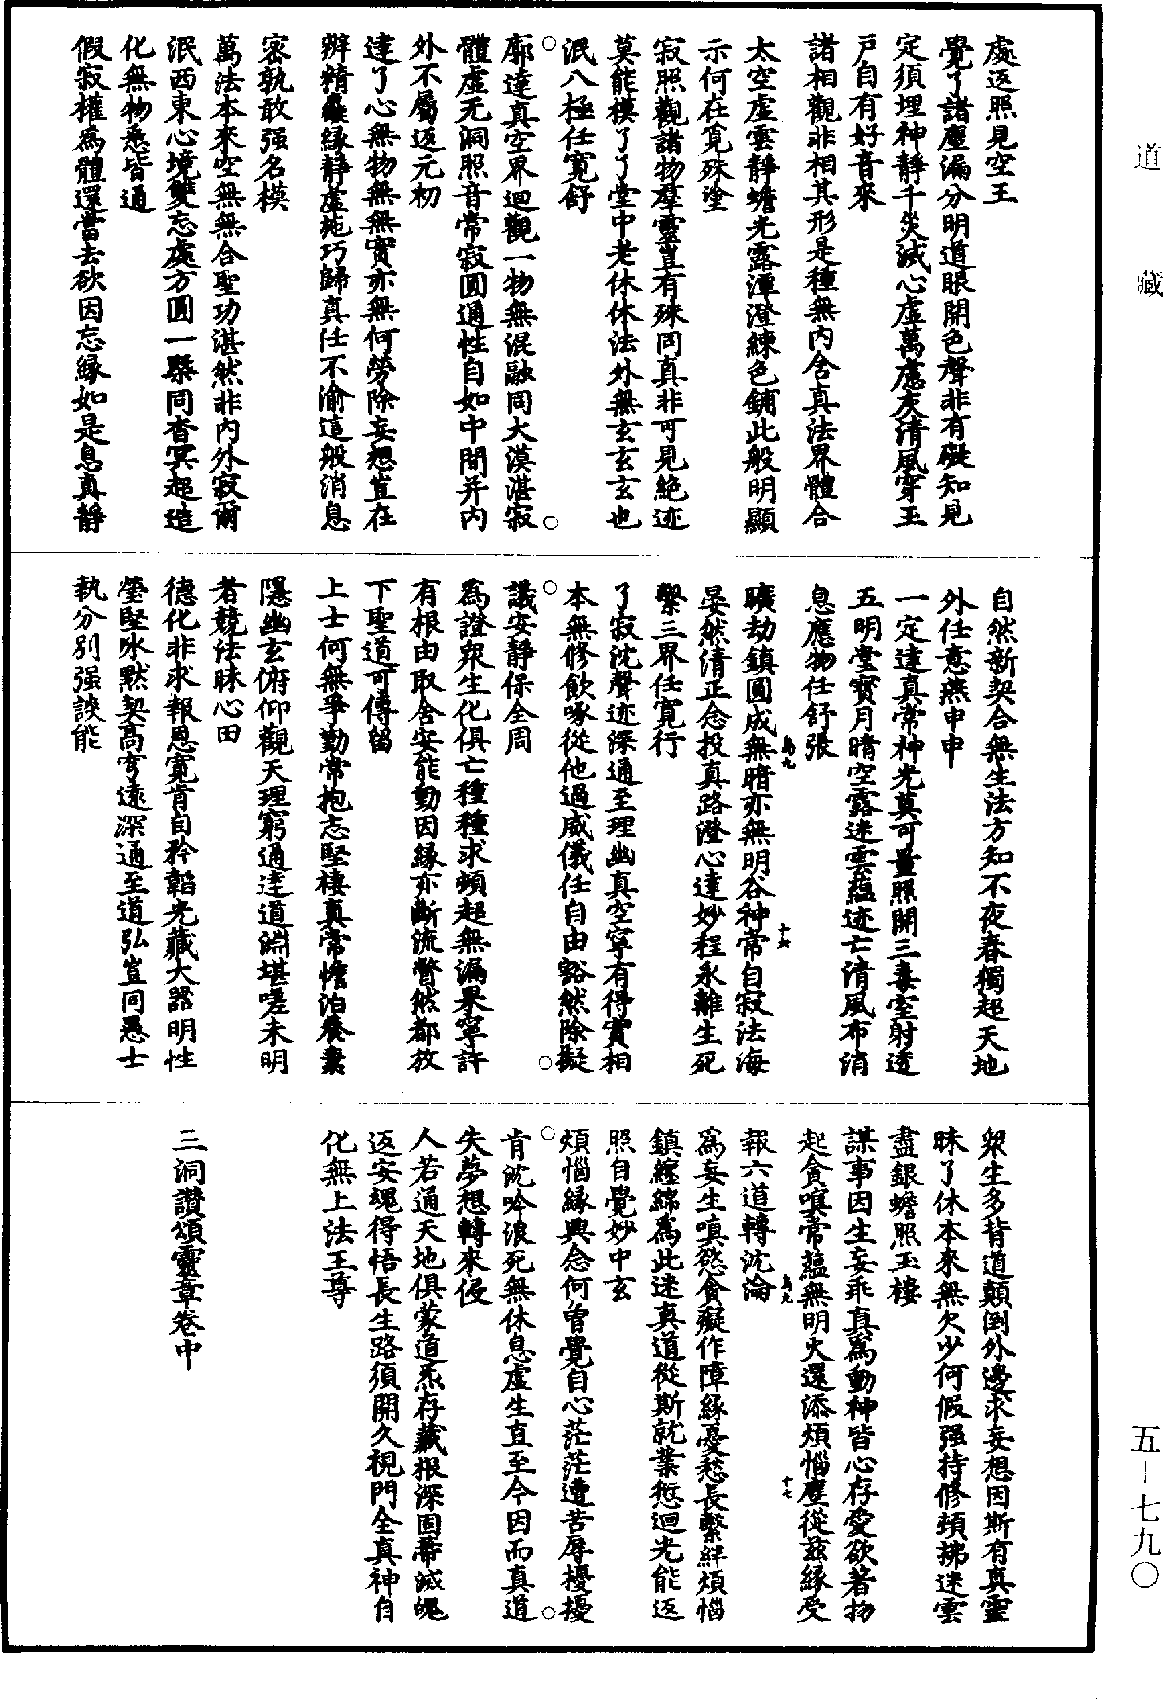 道藏
處返照見空王
覺了諸塵漏分明道眼開色聲非有礙知見
定須埋神靜千災滅心虛萬慮灰清風穿玉
戶自有好音來
諸相觀非相其形是種無內含真法界體合
太空虛雲靜蟾光露潭澄練色鋪此般明顯
示何在覓殊塗
寂照觀諸物羣靈豈有殊同真非可見絶迹
莫能模了了堂中老休休法外無玄玄玄也
泯八極任寬舒
廓達真空界迴觀一物無混融同大漠湛寂
體虛无洞照音常寂圓通性自如中間并內
外不屬返元初
達了心無物無無實亦無何勞除妄想豈在
辨精麤緣靜虛施巧歸真任不渝這般消息
密孰敢强名模
萬法本來空無無合聖功湛然非內外寂爾
泯西東心境雙忘處方圓一槩同杳冥超造
化無物悉皆通
假寂權為體還當去欲因忘緣如是息真靜
自然新契合無生法方知不夜春獨超天地
外任意燕申申
一定達真常神光莫可量照開三毒室射透
五明堂寶月晴空露迷雲蘊迹亡清風布消
息應物任舒張
曠劫鎮圓成無暗亦無明谷神常自寂法海
晏然清正念投真路澄心達妙程永離生死
繫三界任寛行
了寂沈聲迹深通至理幽真空寧有得實相
本無修飲啄從他過威儀任自由豁然除礙
議安靜保全周
為證衆生化俱亡種種求頓超無漏果寧許
有根由取舍安能動因緣亦斷流瞥然都放
下聖道可傳留
上士何無爭勤常抱志堅棲真常憺泊養素
隱幽玄俯仰觀天理窮通達道淵堪嗟未明
者競法昧心田
德化非求報恩寛肯自矜韜光藏大器明性
瑩堅冰默契高穹遠深通至道弘豈同愚士
執分別强談能
衆生多背道顛倒外邊求妄想因斯有真靈
昧了休本來無欠少何假强持修頓拂迷雲
盡銀蟾照玉樓
謀事因生妄乖真為動神皆心存愛欲著物
起貪嗔常蘊無明火還添煩惱塵從茲緣受
報六道轉沈淪
為妄生嗔慾貪癡作障緣憂愁長繫絆煩惱
鎮纏綿為此迷真道從斯就業愆迴光能返
照自覺妙中玄
煩惱緣興念何曾覺自心茫茫遭苦辱擾擾
肯沈吟浪死無休息虛生直至今因而真道
失夢想轉來侵
人若通天地俱蒙道炁存藏根深固蔕滅魄
返安魂得悟長生路須開久視門全真神自
化無上法王尊
三洞讚頌靈章卷中
五—七九〇